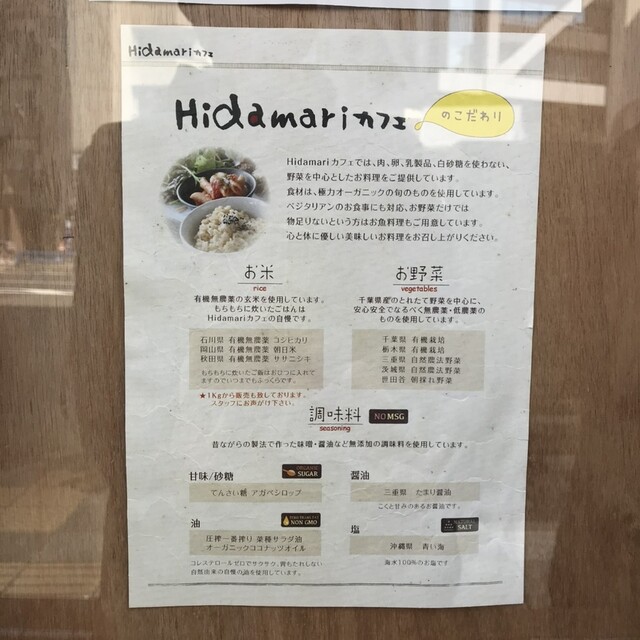 Hidamariカフェ
Hidamariカフェ のこだわり
Hidamariカフェでは、肉、卵、乳製品、白砂糖を使わない、
野菜を中心としたお料理をご提供しています。
食材は、極力オーガニックの旬のものを使用しています。
ベジタリアンのお食事にも対応、お野菜だけでは
物足りないという方はお魚料理もご用意しています。
心と体に優しい美味しいお料理をお召し上がりください。
お米
rice
有機無農薬の玄米を使用しています。
もちもちに炊いたごはんは
Hidamariカフェの自慢です。
石川県 有機無農薬 コシヒカリ
岡山県 有機無農薬 朝日米
秋田県 有機無農薬 ササニシキ
もちもちに炊いたご飯はおひつに入れて
ますのでいつまでもふっくらです。
★1Kgから販売も致しております。
スタッフにお声がけ下さい。
お野菜
vegetables
千葉県産のとれたて野菜を中心に、
安心安全でなるべく無農薬・低農薬の
ものを使用しています。
千葉県 有機栽培
栃木県 有機栽培
三重県 自然農法野菜
茨城県 自然農法野菜
世田谷 朝採れ野菜
調味料 NO MSG
seasoning
昔ながらの製法で作った味噌・醤油など無添加の調味料を使用しています。
甘味/砂糖 ORGANIC SUGAR
てんさい糖 アガベシロップ
油 NON GMO
圧搾一番搾り 菜種サラダ油
オーガニックココナッツオイル
コレステロールゼロでサラサラ、胃もたれしない
自然由来の油を使用しています。
醤油
三重県 たまり醤油
こくと甘みのあるお醤油です。
塩 NATURAL SALT
沖縄県 青い海
海水100%のお塩です